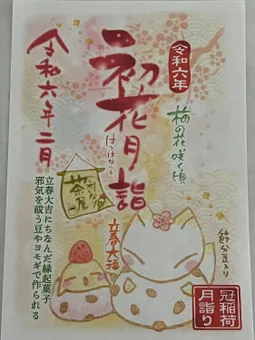 令和六年
初花月詣
はつはなづき
令和六年二月
梅の花咲く頃
茶屋
立春大福
節分豆入り
立春大吉にちなんだ縁起菓子
邪気を祓う豆やヨモギで作られる
冠稲荷
月詣り